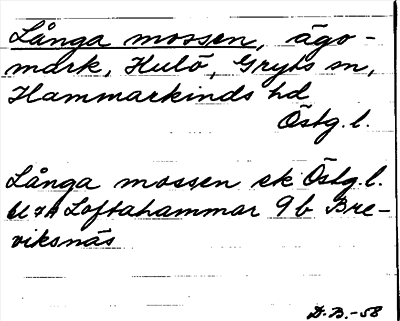 Långa mossen, ägo-
mark, Hulö, Gryts sn,
Hammarkinds hd
Östg. l.
Långa mossen ek Östg. l.
Loftahammar 9 b Bre-
viksnäs
D. B. -58